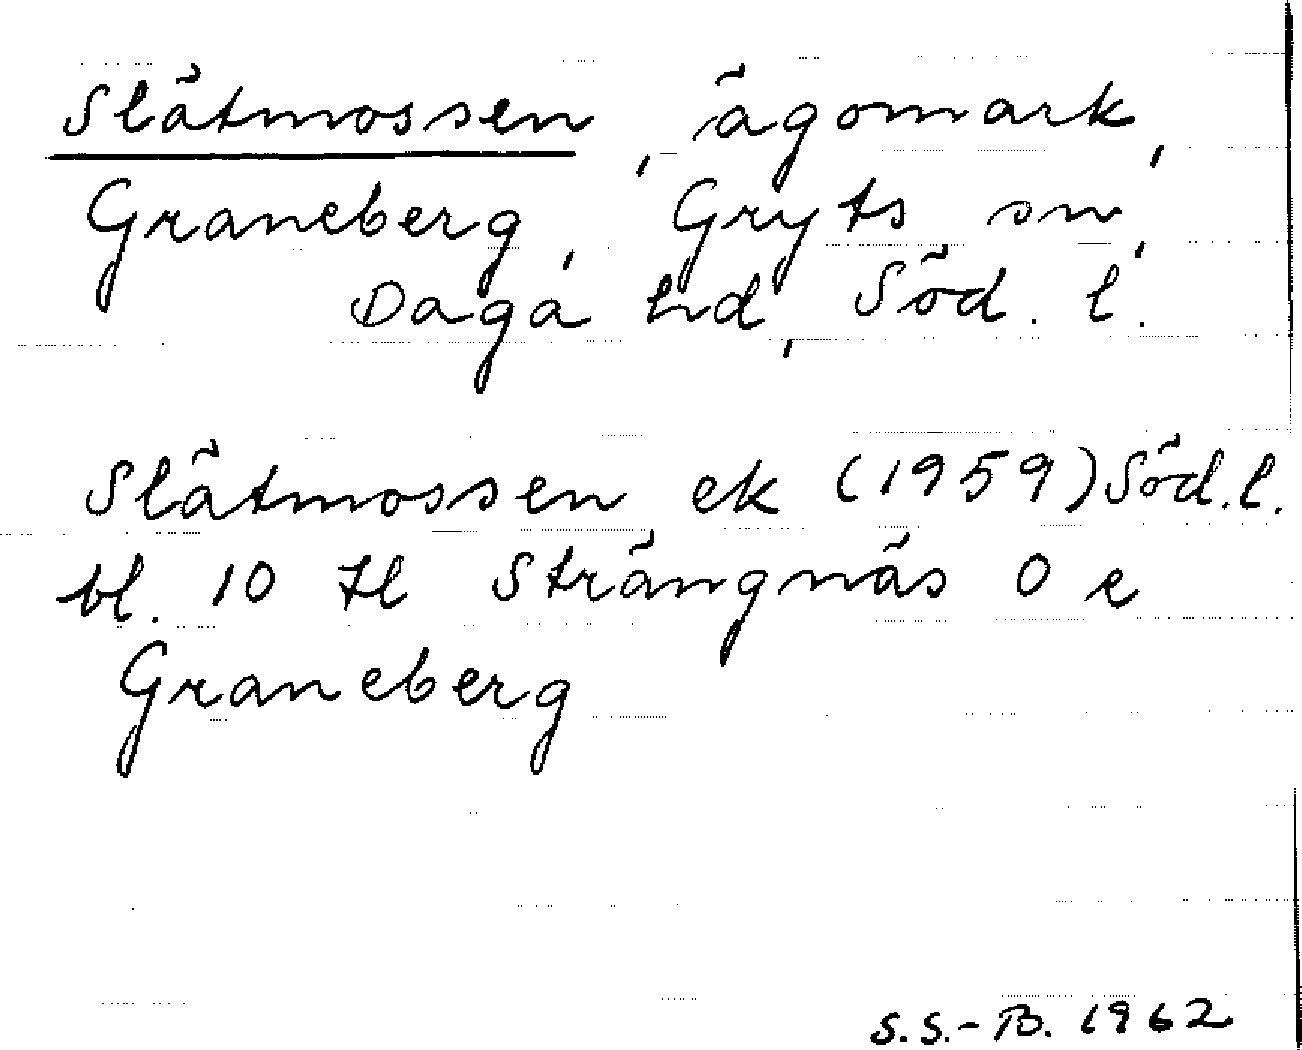 Slätmossen, ägomark,
Graneberg, Gryts sn,
Daga hd, Söd. l.
Slätmossen ek (1959) Söd. l.
bl. 10 tl Strängnäs O e
Graneberg
S.S.-B. 1962